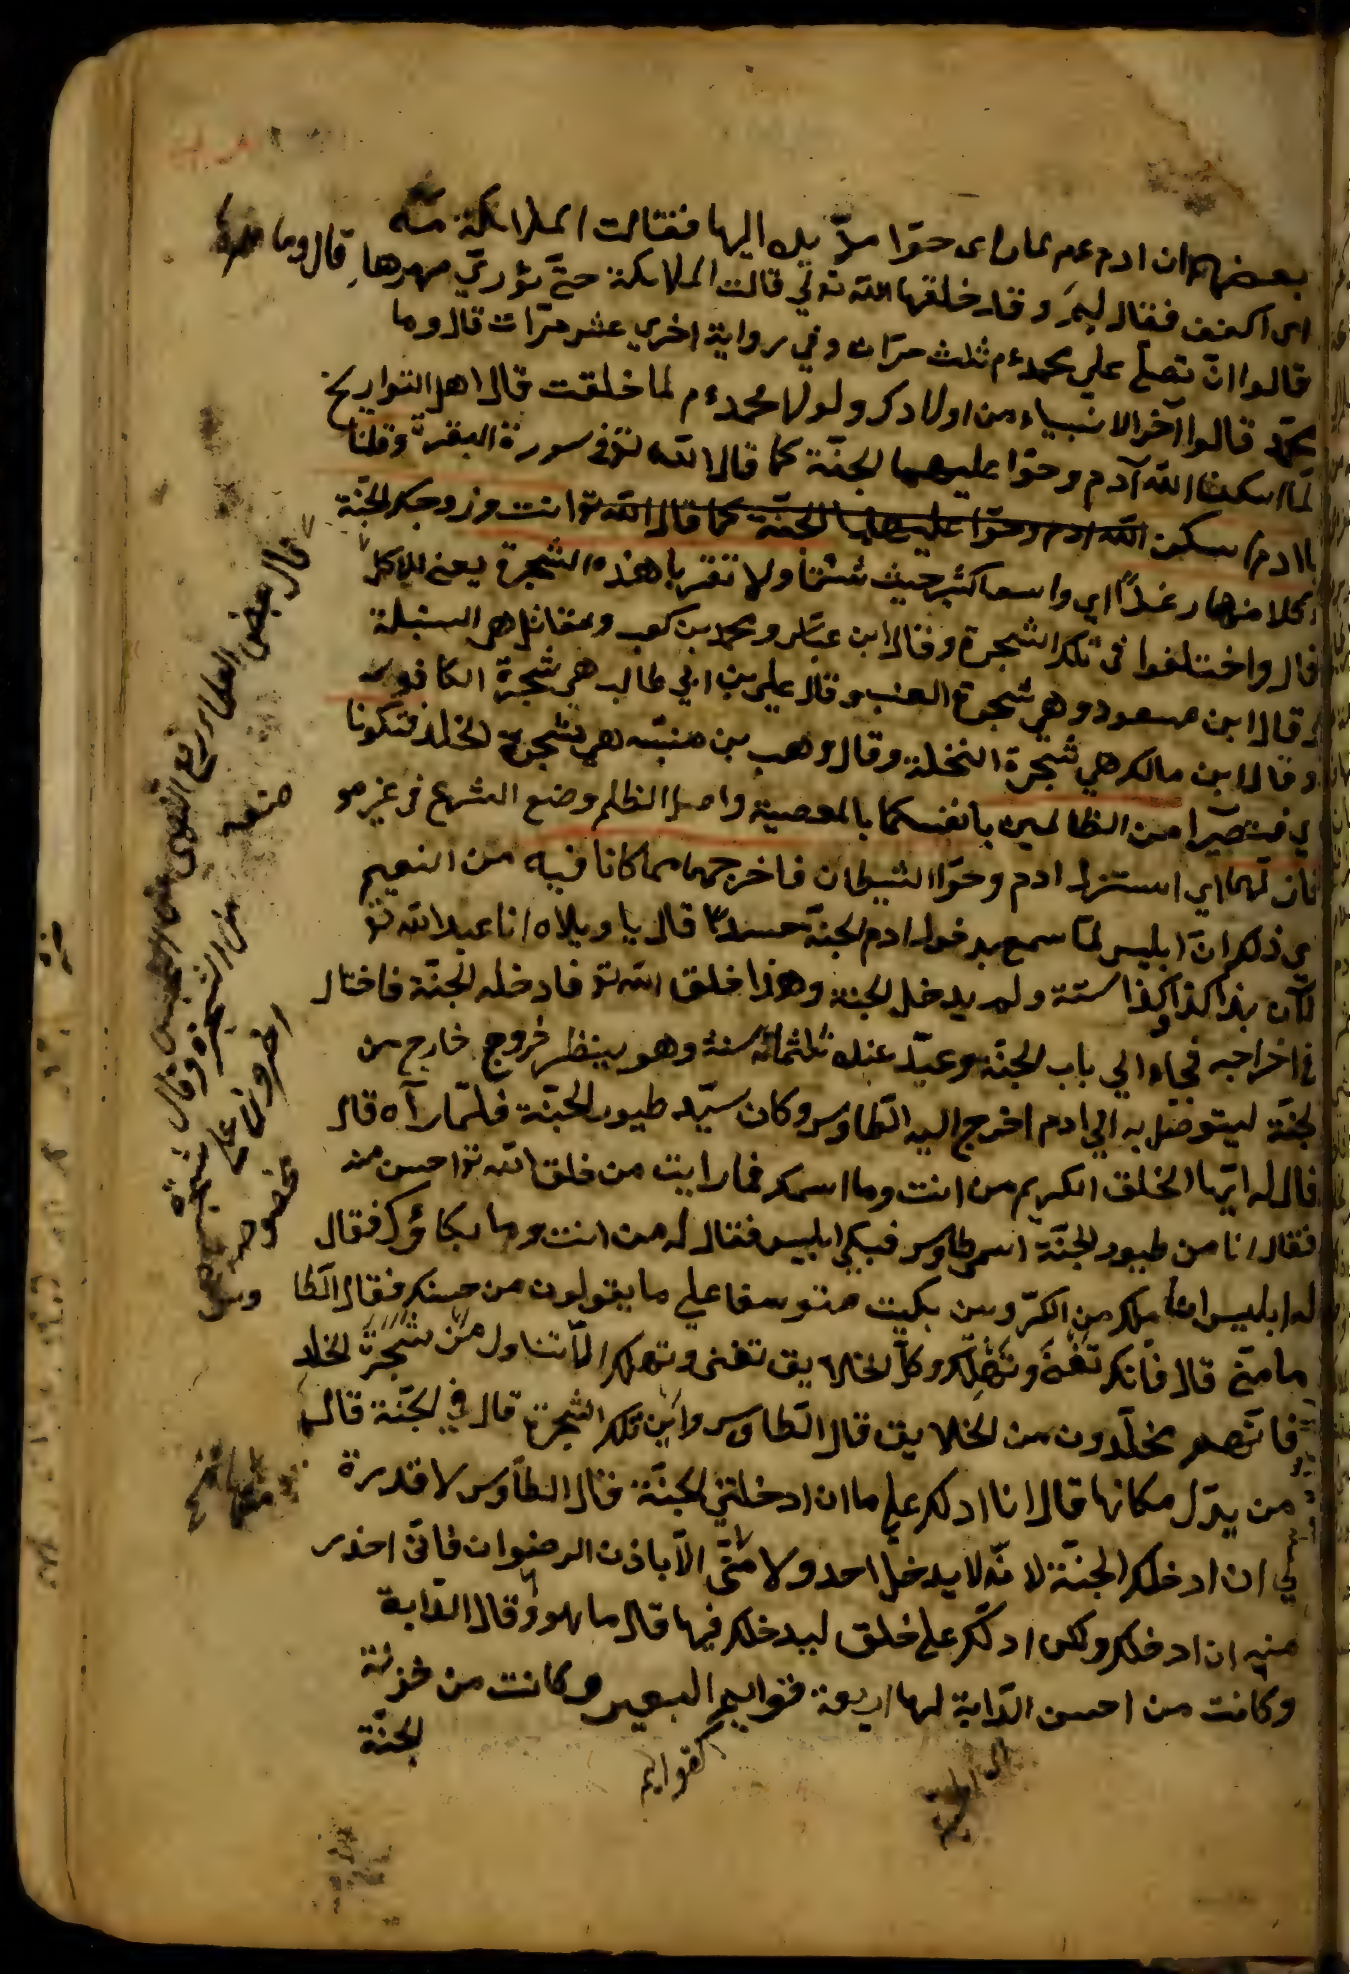 بعضهم ان ادم عم لما راى حوّا مدّ يده اليها فقالت الملائكة مه
اى اكفف فقال لِمَ وقد خلقها الله تع لي قالت الملائكة حتّى تؤدّي مهرها قال وما مهرها
قالوا انْ تصلّى على محمد عم ثلث مرّات وفي رواية اخرى عشر مرّات قال وما
محمّد قالوا آخر الانبياء من اولادك ولولا محمد عم لما خلقت قال اهل التواريخ
لمّا اسكن الله آدم وحوّا عليهما الجنّة كما قال الله تع فى سورة البقرة وقلنا
يا ادم اسكن الله ادم وحوّا عليهما الجنّة كما قال الله تع انت وزوجك الجنّة
وكلا منها رغداً اي واسعا كثير حيث شئتما ولا تقربا هذه الشجرة يعنى للاكل
قال واختلفوا فى تلك الشجرة وقال ابن عبّاس ومحمد بن كعب ومقاتل هى السنبلة
وقال ابن مسعود وهى شجرة العنب وقال علي بن ابي طالب هى شجرة الكافور
وقال ابن مالك هي شجرة النخلة وقال وهب بن منبّه هى شجرة الخلد فتكونا
اي فتصيرا من الظالمين بانفسكما بالمعصية واصل الظلم وضع الشيء فى غير مو
فازلّهما اي استزل ادم وحوّا الشيطان فاخرجهما مما كانا فيه من النعيم
فى ذلك انّ ابليس لمّا سمع بدخول ادم الجنّة حسداً قال يا ويلاه انا عبد الله تع
لآن بذا كذا وكذا سنة ولم يدخل الجنة وهذا خلق الله تع فادخله الجنّة فاختال
فى اخراجه فجاء الى باب الجنّة وعبد عنده ثلثمائة سنة وهو ينظر خروج خارج من
لجنّة ليتوصل به الى ادم اخرج اليه الطاوس وكان سيّد طيور الجنّة فلمّا رآه قال
قال له ايّها الخلق الكريم من انت وما اسمك فما رايت من خلق الله تع احسن منه
فقال انا من طيور الجنّة اسمى طاوس فبكى ابليس فقال له من انت وما بكاؤك فقال
له ابليس انا ملك من الكرّوبين بكيت متوسفا على ما يقولون من حسنك فقال الطا
ما منّى قال فانّك تفنى وتهلك وكلّ الخلايق تفنى وتهلك الّا تناول من شجرة الخلد
فانّهم مخلّدون من الخلايق قال الطاوس واين تلك الشجرة قال في الجنّة قال
من يدّل مكانها قال انا ادلك عليها ان ادخلتني الجنّة قال الطاوس لا قدرة
لي ان ادخلك الجنّة لانّه لا يدخل احد ولا الّا باذن الرضوان فانّى اخذر
منه ان ادخلك ولكن ادلّك على خلق ليدخلك فيها قال ما هو وقال الدّابة
وكانت من احسن الدّابة لها اربعة قوايم البعير وكانت من خزنة
لجنّة
كقوايم
قال بعض العلماء
من الشجرة وقال